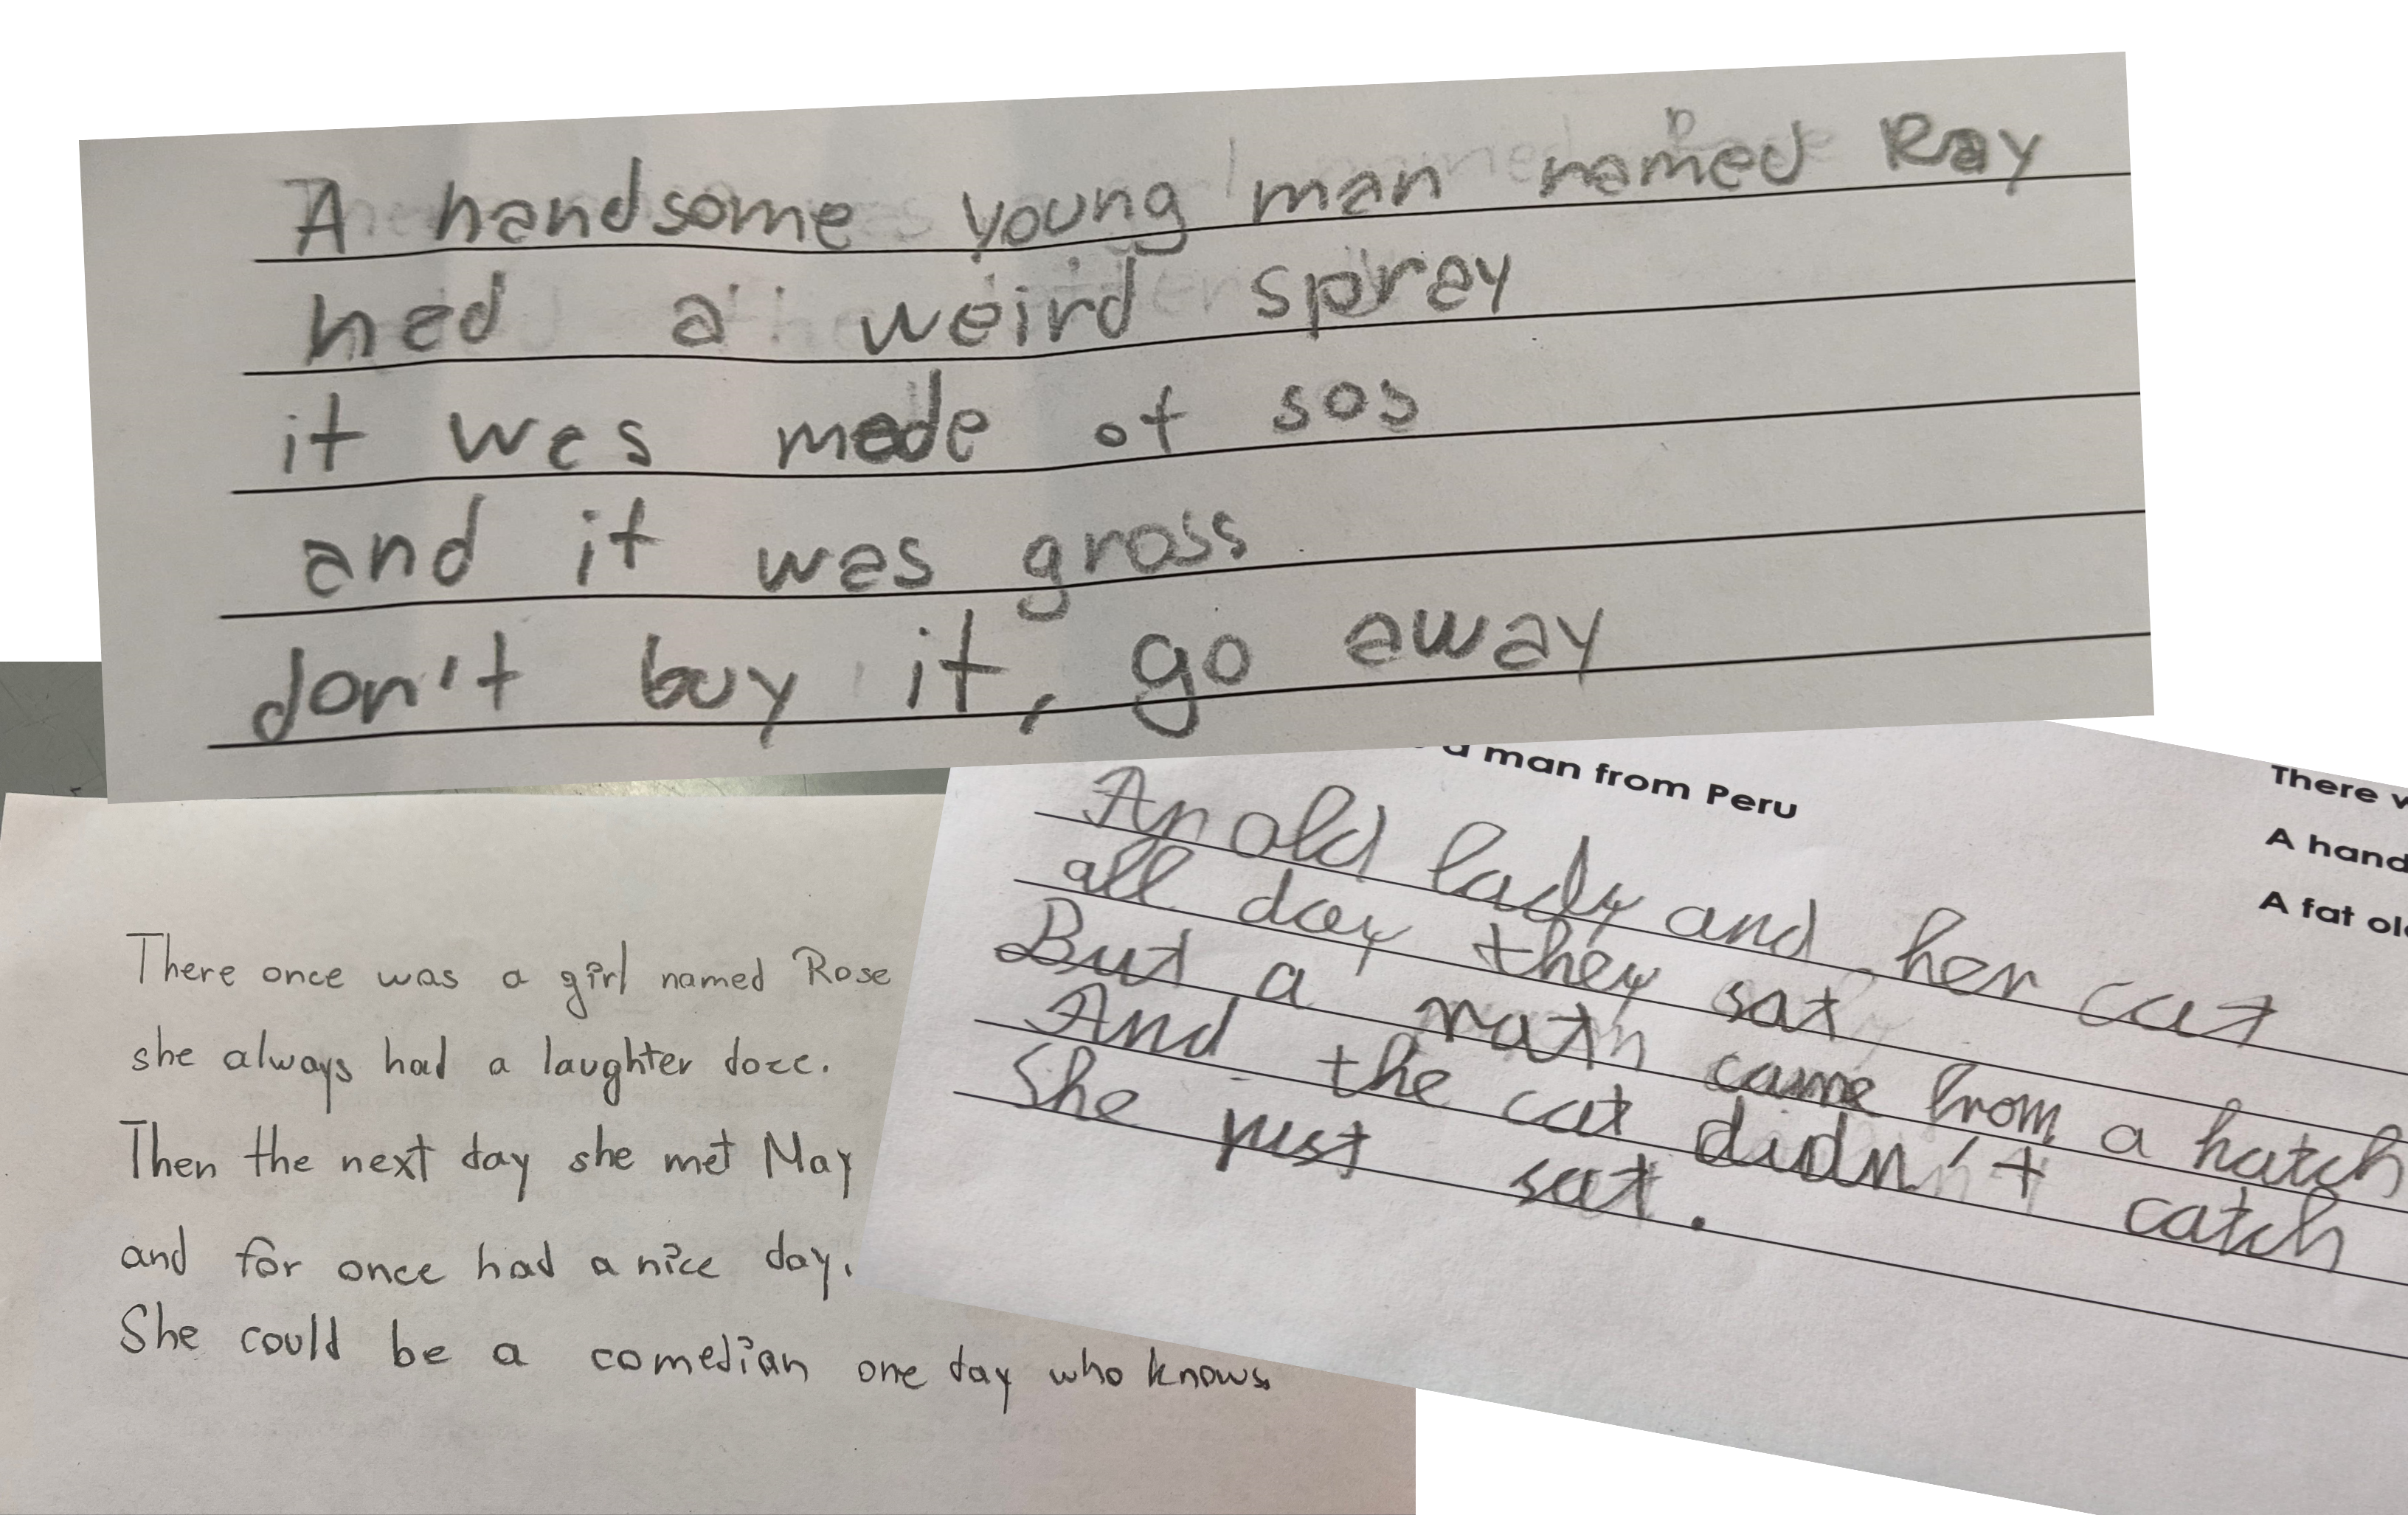 A handsome young man named Ray
had a weird spray
it was made of sos
and it was gross
don't buy it, go away
There once was a girl named Rose
she always had a laughter doze.
Then the next day she met May
and for once had a nice day.
She could be a comedian one day who knows
a man from Peru
An old lady and her cat
all day they sat
But a rat came from a hatch
And the cat didn't catch
She just sat.
There
A hand
A fat